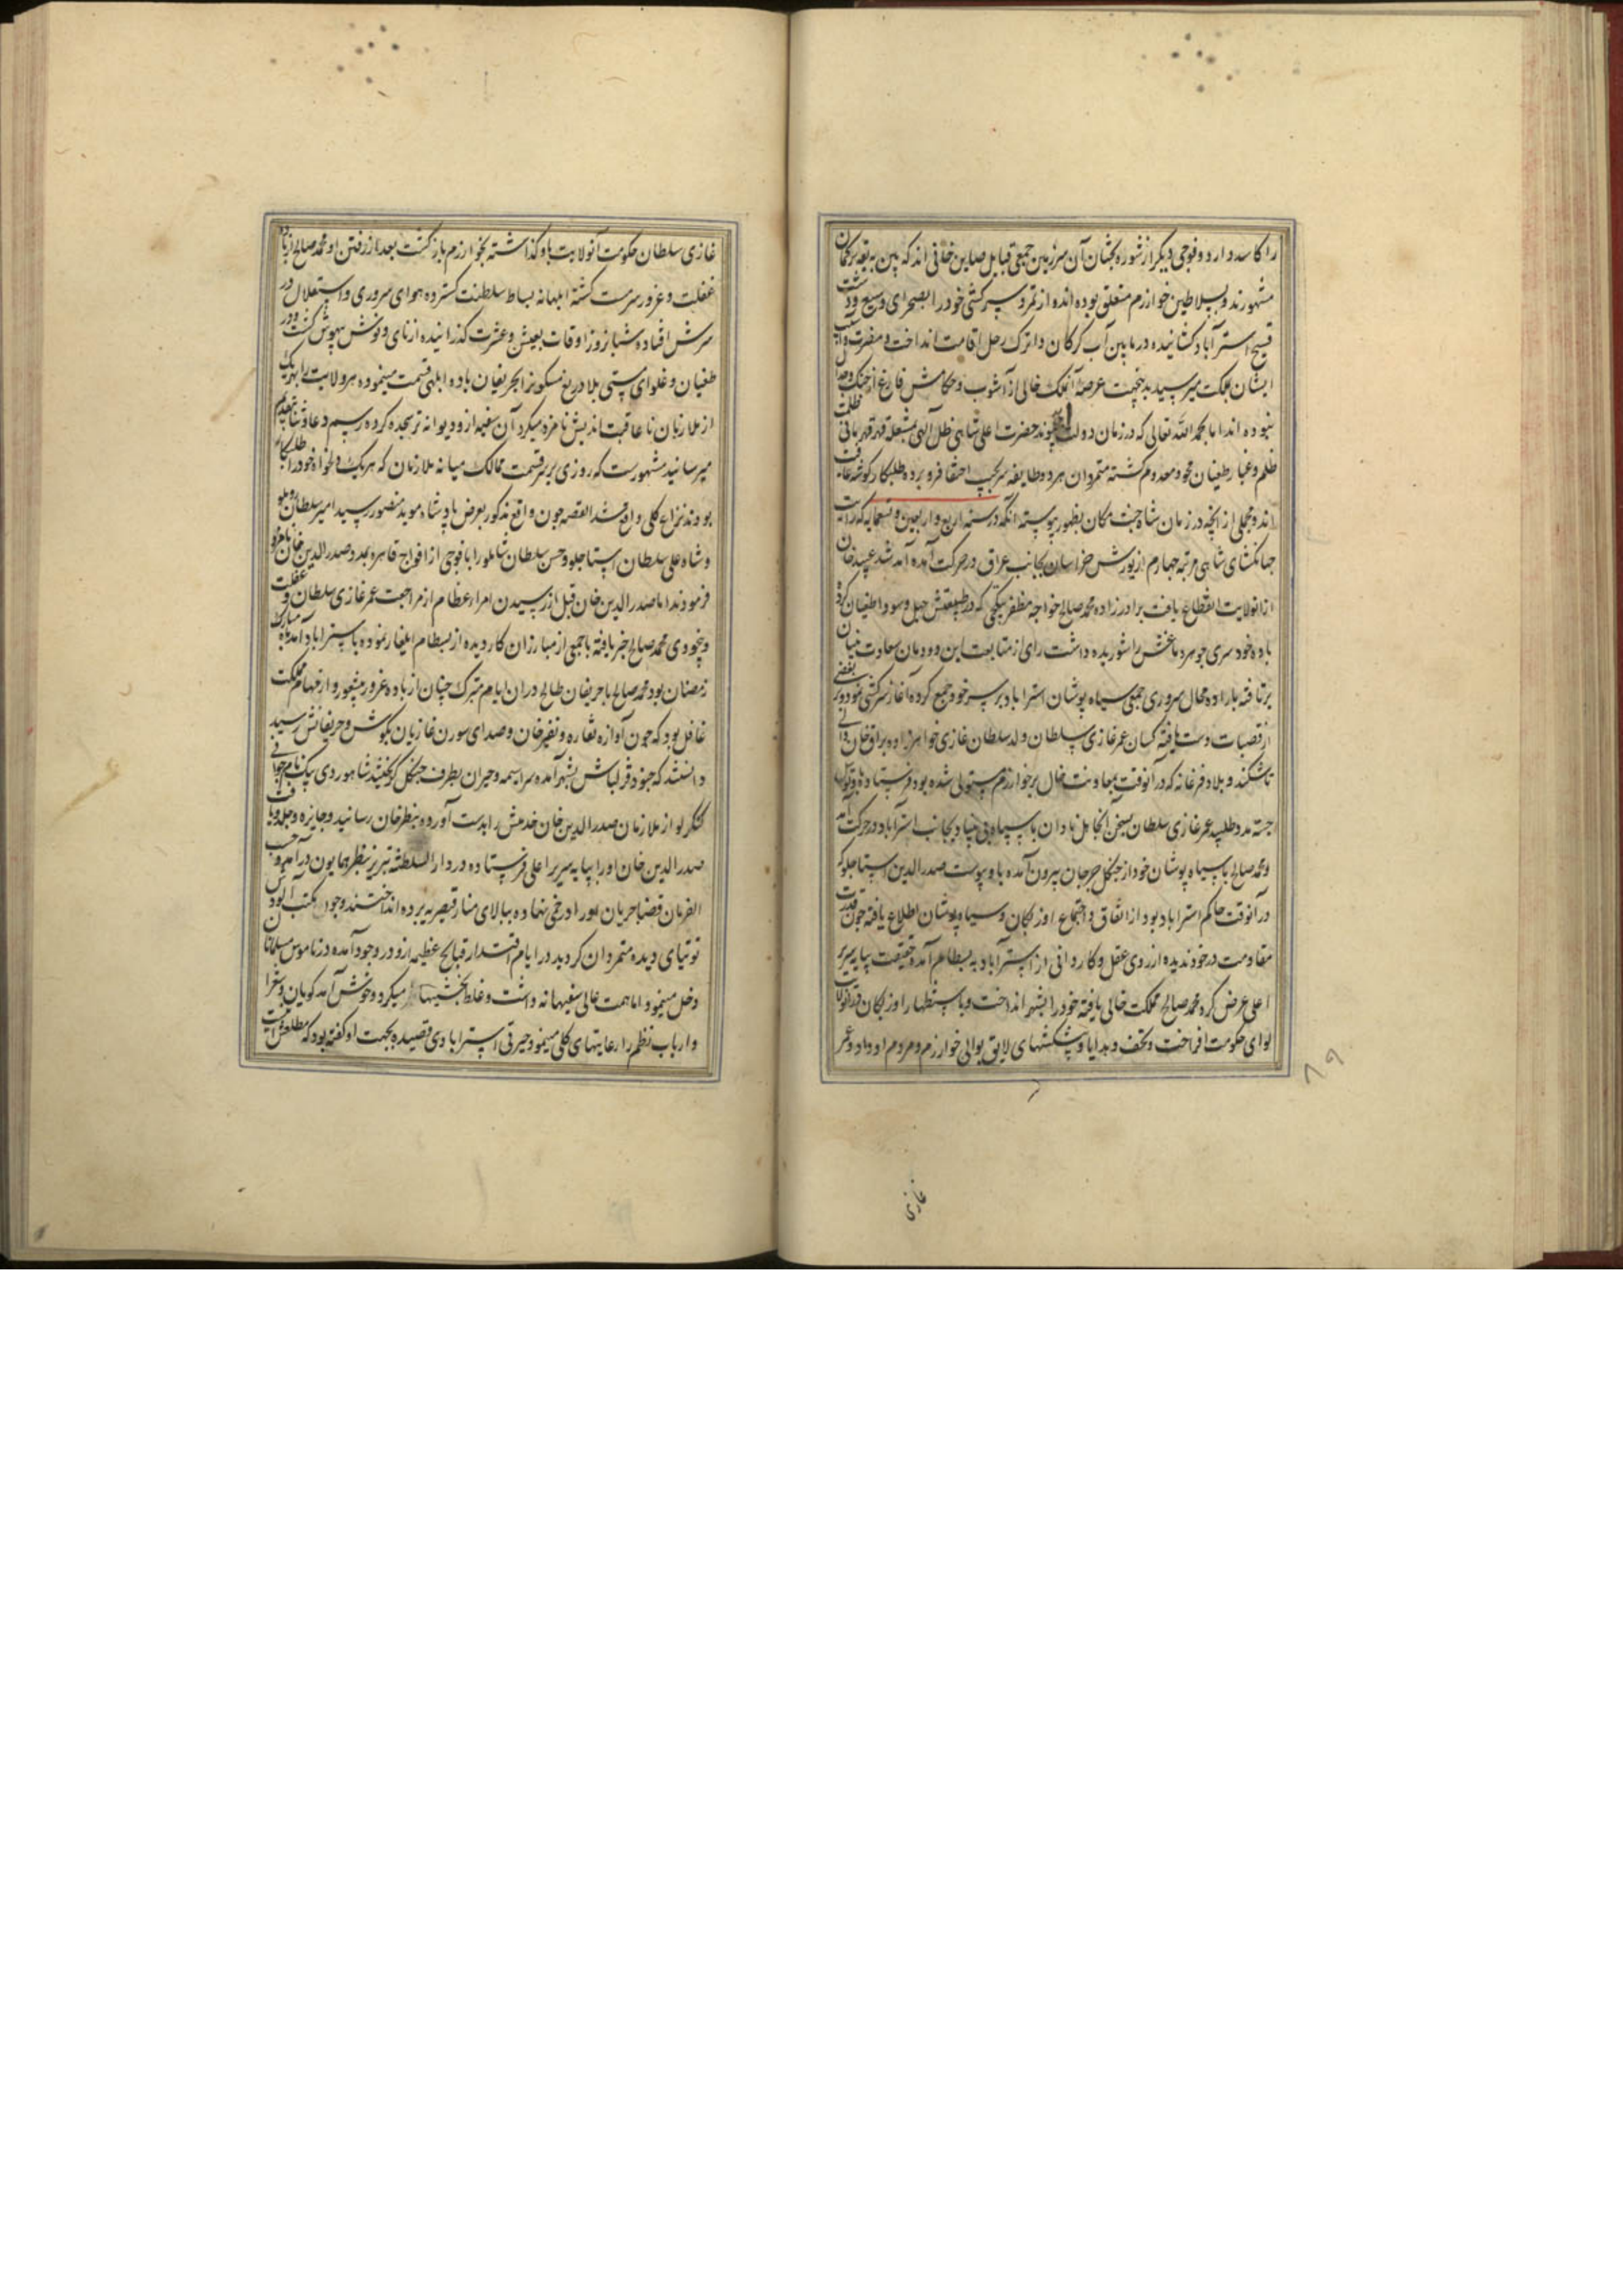 را کاسد دارد و فوجی دیکر از شوره بختان آن سرزمین جمعی قبایل صاین خانی اند که بین به یقه ترکمان
مشهورند و بسلاطین خوارزم متعلق بوده اند از تمرد و سرکشی خود را بصحرای وسیع و دشت
فسیح استرآباد کشانیده در مابین آب کرکان و اترک رحل اقامت انداخت و مضرت و آسیب
ایشان بمملکت میرسید بدینجهت عرصهٔ آنملک خالی از آشوب و حکامش فارغ از جنک و جدل
نبوده اند اما بحمد الله تعالی که در زمان دولت ابد پیوند حضرت اعلی شاهی ظل الهی مشعله قهر قهرمانی ظلمت
ظلم و غبار طغیان محو و معدوم کشته متمردان هر دو طایفه سر بجیب اختفا فرو برده طلبکار کوشه عافیت
اند و مجملی از انچه در زمان شاه جنت مکان بظهور پیوسته آنکه در سنه اربع و اربعین و تسعمایه که رایت
جهانکشای شاهی مرتبه چهارم از یورش خراسان بجانب عراق در حرکت آمده آمد شد عبید خان
از انولایت انقطاع یافت برادرزاده محمد صالح خواجه مظفر بتکچی که در طبیعتش جهل و سودا طغیان کرده
باده خودسری جوهر دماغش را شوریده داشت رای از متابعت این دودمان سعادت بنیان
برتافته باراده محال سروری جمعی سیاه پوشان استراباد بر سر خود جمع کرده آغاز سرکشی نمود و بر بعضی
از قصبات دست یافته کسان عمر غازی سلطان ولد سلطان غازی خواهرزاده براق خان والی
تاشکند و بلاد فرغانه که در آنوقت بمعاونت خال بر خوارزم مستولی شده بود فرستاده و توسل
جسته مدد طلبید عمر غازی سلطان بسخن آنجاهل نادان با سپاه بی بنیاد بجانب استراباد در حرکت آمد
و محمد صالح با سیاه پوشان خود از جنکل جرجان بیرون آمده باو پیوست صدر الدین استاجلو که
در آنوقت حاکم استراباد بود از اتفاق و اجتماع اوزبکان و سیاه پوشان اطلاع یافته چون قدرت
مقاومت در خود ندیده از روی عقل و کاردانی از استرآباد به بسطام آمده حقیقت بپایه سریر
اعلی عرض کرد محمد صالح مملکت خالی یافته خود را بشهر انداخت و باستظهار اوزبکان در انولایت
لوای حکومت افراخت و تحف و هدایا و پیشکشهای لایق بوالی خوارزم و مردم او داد و عمر
غازی
غازی سلطان حکومت آنولایت باو کذاشته بخوارزم بازکشت بعد از رفتن او محمد صالح از باده
غفلت و غرور سرمست کشته ابلهانه بساط سلطنت کسترده هوای سروری و استقلال در
سرش افتاده شبانروز اوقات بعیش و عشرت کذرانیده از نای و نوش بیهوش کشت و در
طغیان و غلوای مستی بلاد ربع مسکون را بحریفان باده ابلهی قسمت مینموده هر ولایت را بهر یک
از ملازمان ناعاقبت اندیش نامزد میکرد آن سفیه از و دیوانه تر سجده کرده رسم دعا و ثنا بتقدیم
میرسانید مشهورست که روزی بر سر قسمت ممالک میانه ملازمان که هر یک دلخواه خود را طلبکار
بودند نزاع کلی واقع شد القصه چون واقع مذکور بعرض پادشاه موید منصور رسید امیر سلطان روملو
و شاه علی سلطان استاجلو و حسن سلطان شاملو را با فوجی از افواج قاهره بمدد صدر الدین خان نامزد
فرمودند اما صدر الدین خان قبل از رسیدن امراء عظام از مراجعت عمر غازی سلطان و غفلت
و بیخودی محمد صالح خبر یافته با جمعی از مبارزان کاردیده از بسطام ایلغار نموده باستراباد آمد ماه مبارک
رمضان بود محمد صالح با حریفان طالح در ان ایام متبرک چنان از باده غرور بیشعور و از مهام مملکت
غافل بود که چون آوازه نقاره و نفیر خان و صدای سورن غازیان بکوش و حریفانش رسید
دانستند که جنود قزلباش بشهر آمده سراسیمه و حیران بطرف جنکل کریختند شاهوردی بیک نام جوانی
کنکرلو از ملازمان صدر الدین خان خدمتش را بدست آورده بنظر خان رسانید و جایزه و جلدو یافت
صدر الدین خان او را بپایه سریر اعلی فرستاده در دار السلطنه تبریز بنظر همایون درآمد و حسب
الفرمان قضا جریان او را در خمی نهاده ببالای منار نصریه برده انداختند وجود
توتیای دیده متمردان کردید در ایام اقتدار قبایح عظیمه ازو در وجود آمده در ناموس مسلمانان
دخل مینمود اما همت عالی سفیهانه داشت و غلط بخشیها میکرد و خوش آمد کویان و شعرا
و ارباب نظم را رعایتهای کلی مینمود حیرتی استرابادی قصیده بجهت او کفته بود که مطلعش اینست